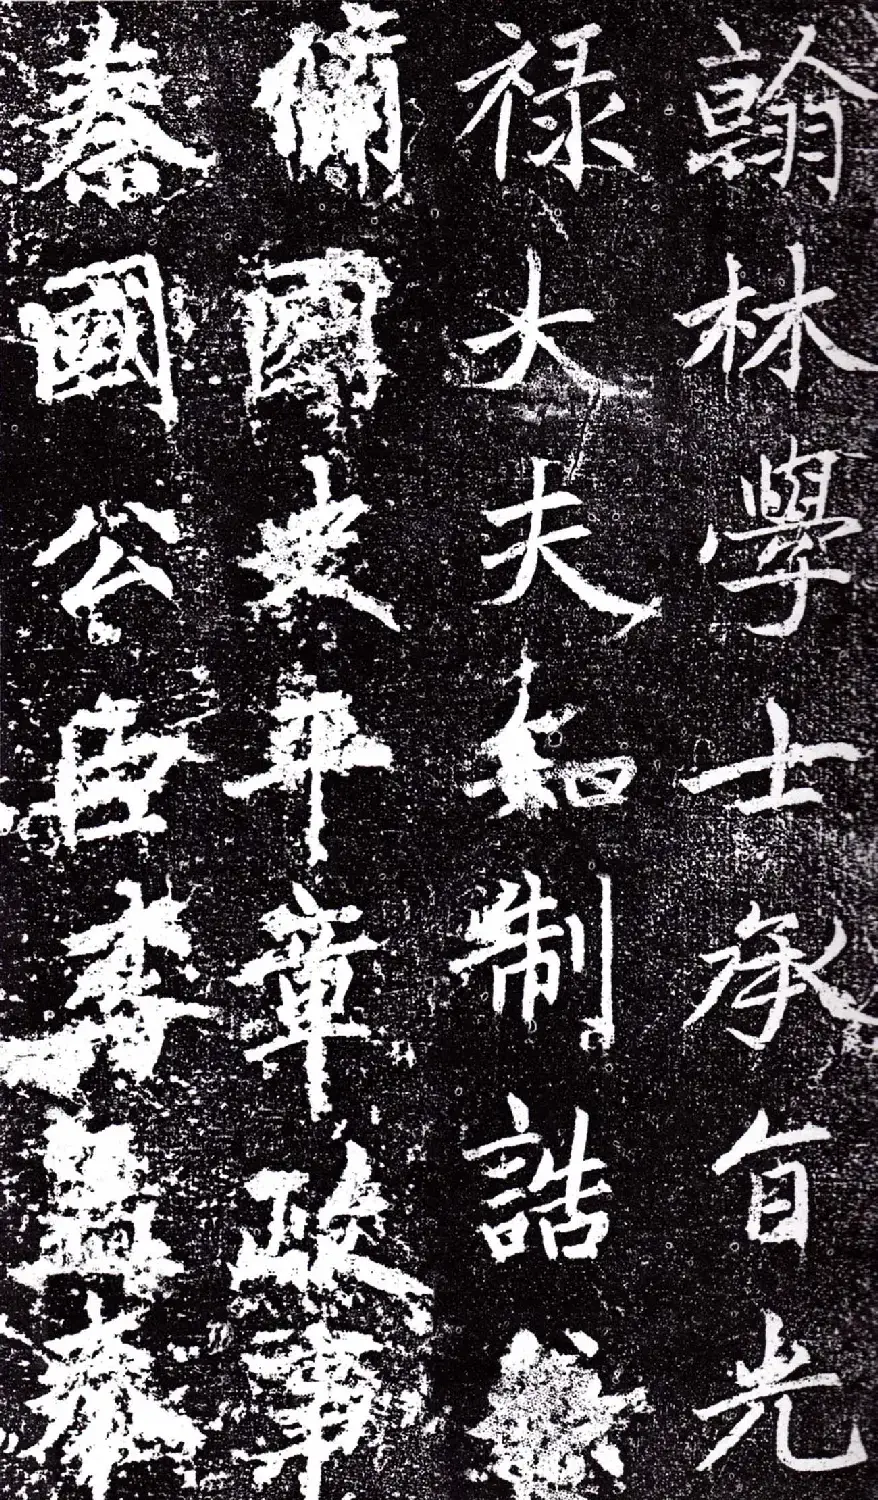 翰林學士承旨光
禄大夫知制誥
脩國史平章政事
秦國公臣李孟奉